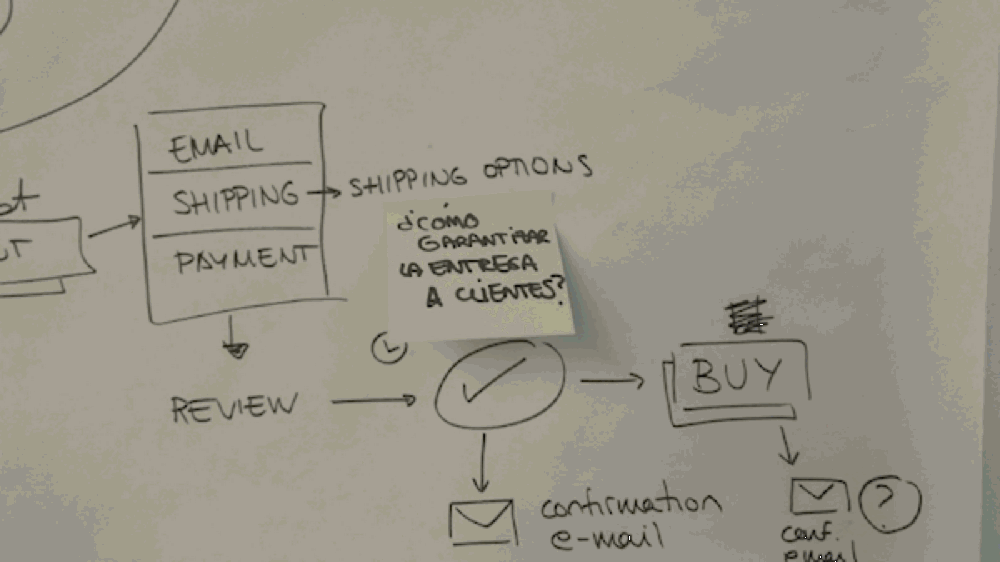 EMAIL
SHIPPING → SHIPPING OPTIONS
PAYMENT
¿CÓMO
GARANTIZAR
LA ENTREGA
A CLIENTES?
REVIEW
BUY
confirmation
e-mail
?
conf.
email